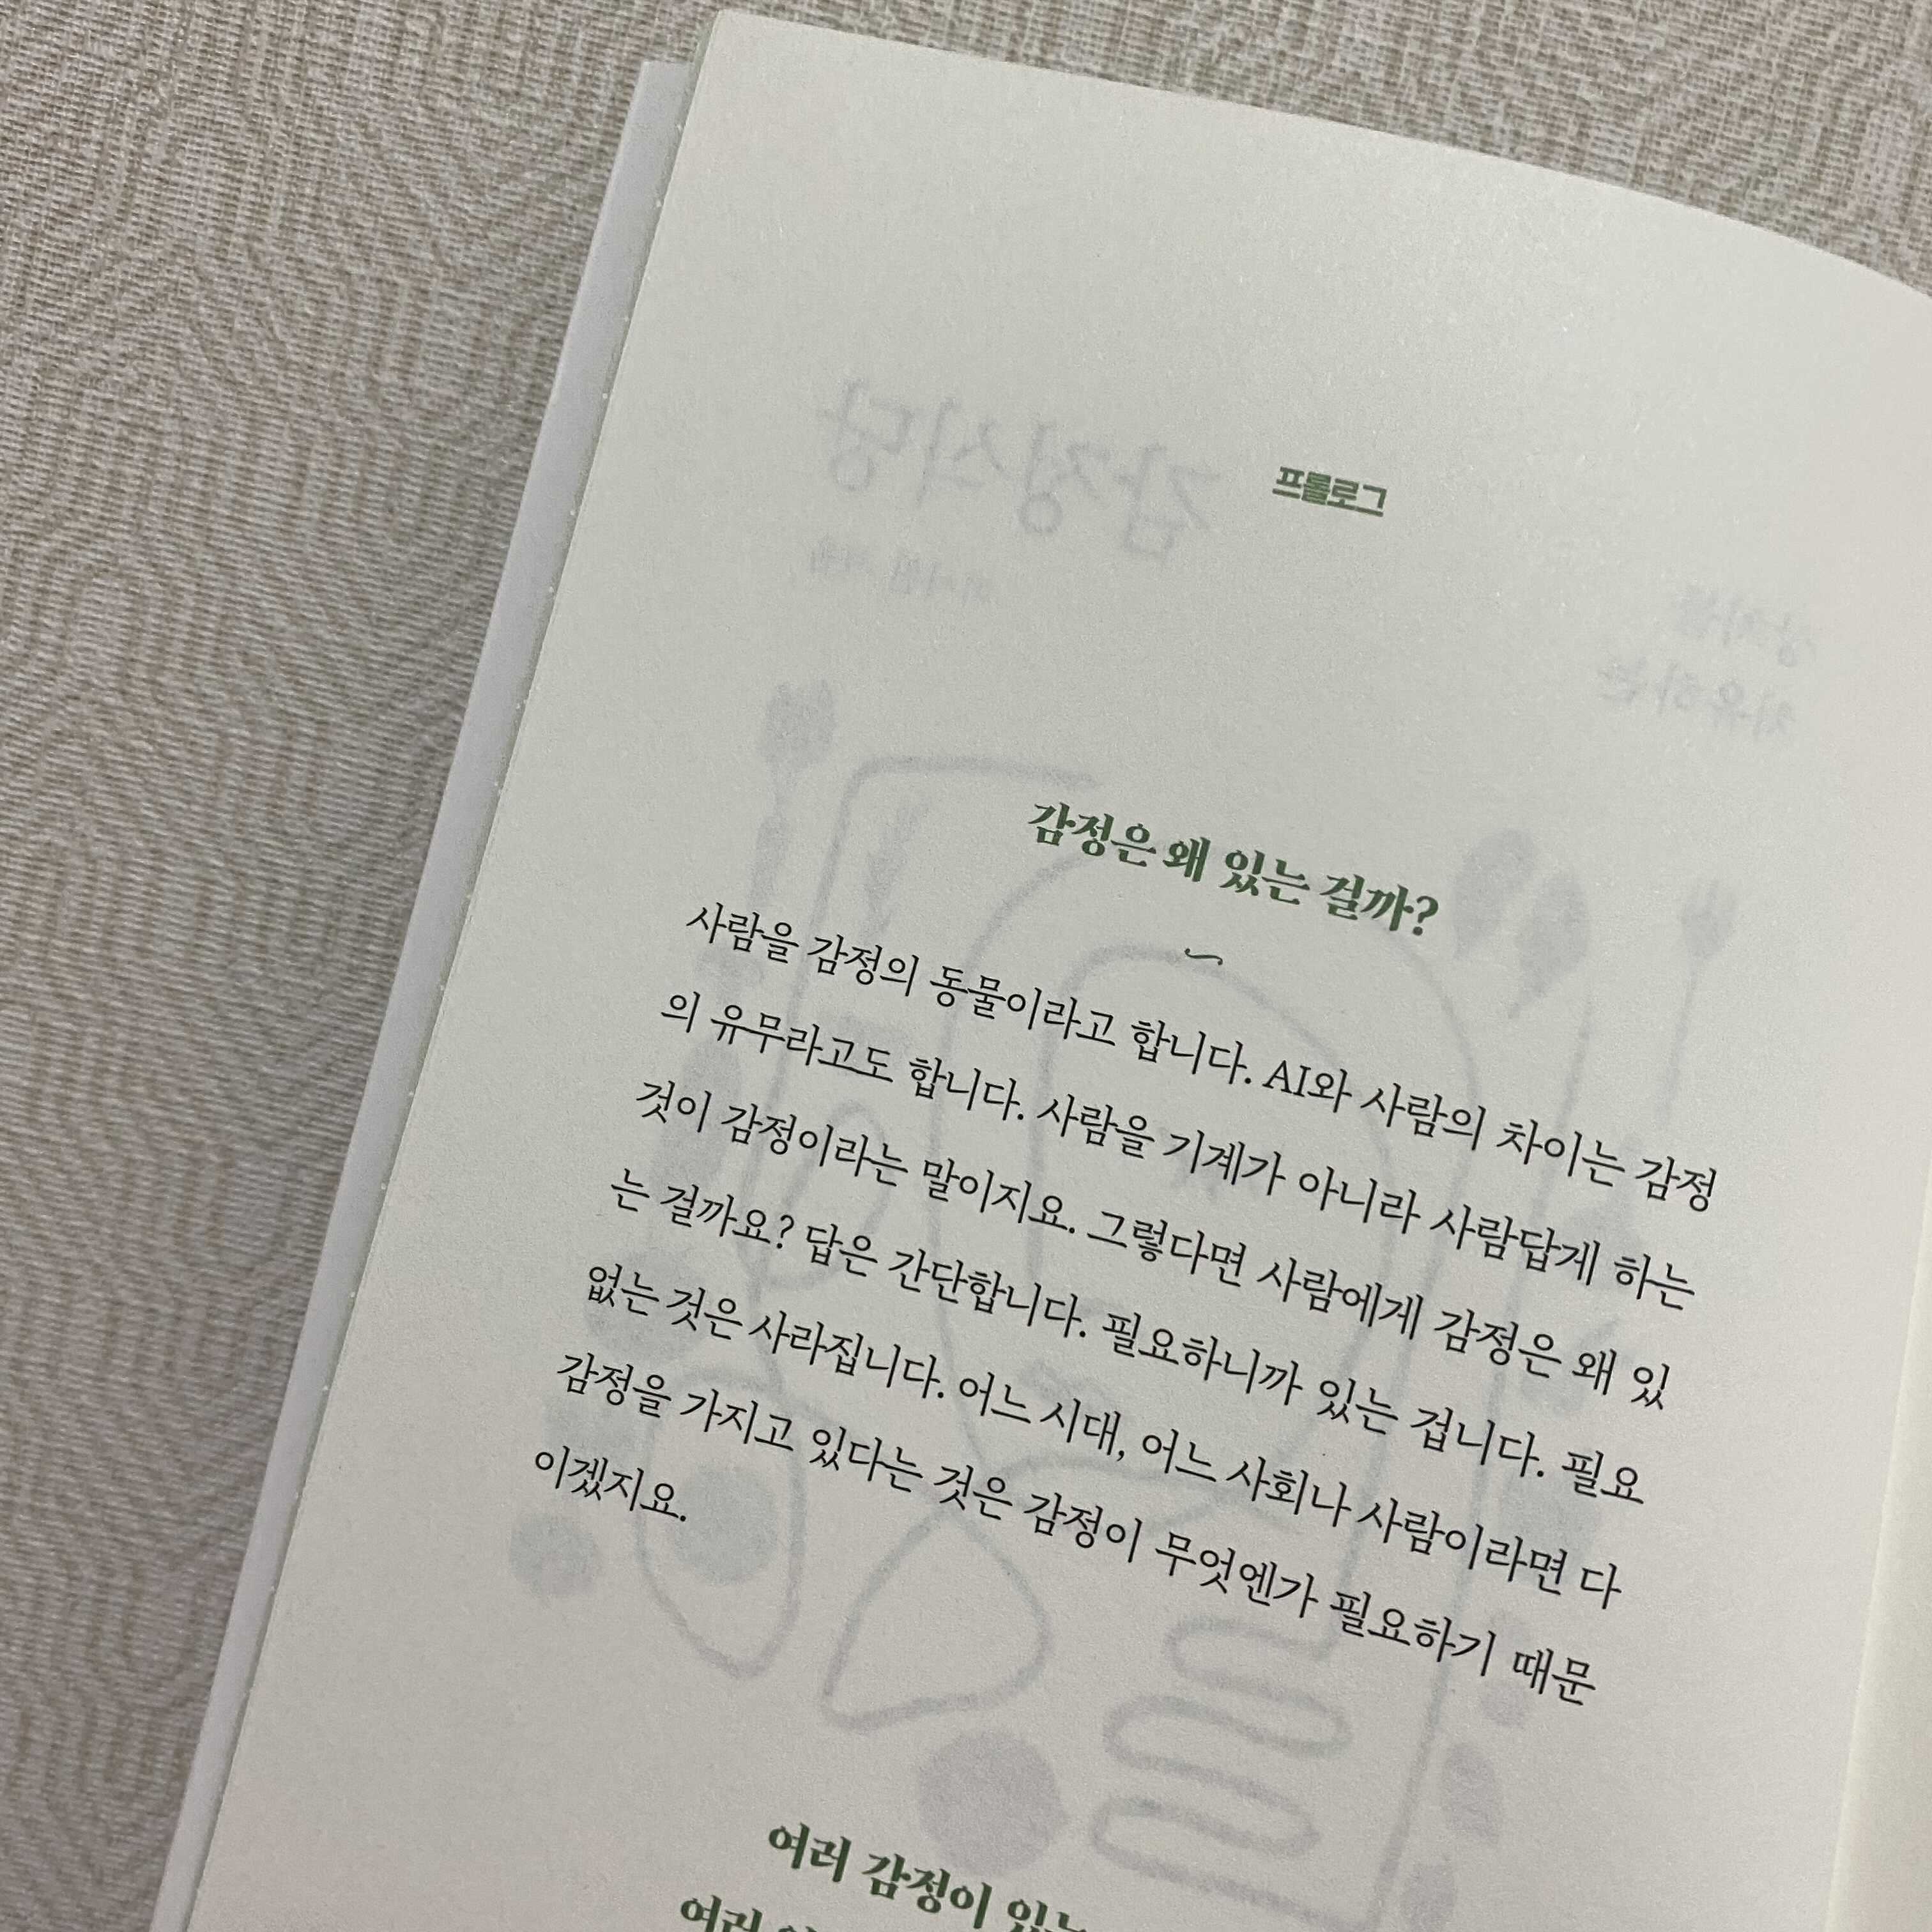 프롤로그
감정은 왜 있는 걸까?
사람을 감정의 동물이라고 합니다. AI와 사람의 차이는 감정
의 유무라고도 합니다. 사람을 기계가 아니라 사람답게 하는
것이 감정이라는 말이지요. 그렇다면 사람에게 감정은 왜 있
는 걸까요? 답은 간단합니다. 필요하니까 있는 겁니다. 필요
없는 것은 사라집니다. 어느 시대, 어느 사회나 사람이라면 다
감정을 가지고 있다는 것은 감정이 무엇엔가 필요하기 때문
이겠지요.
여러 감정이 있는
여러
감정식당
상처를
치유하는